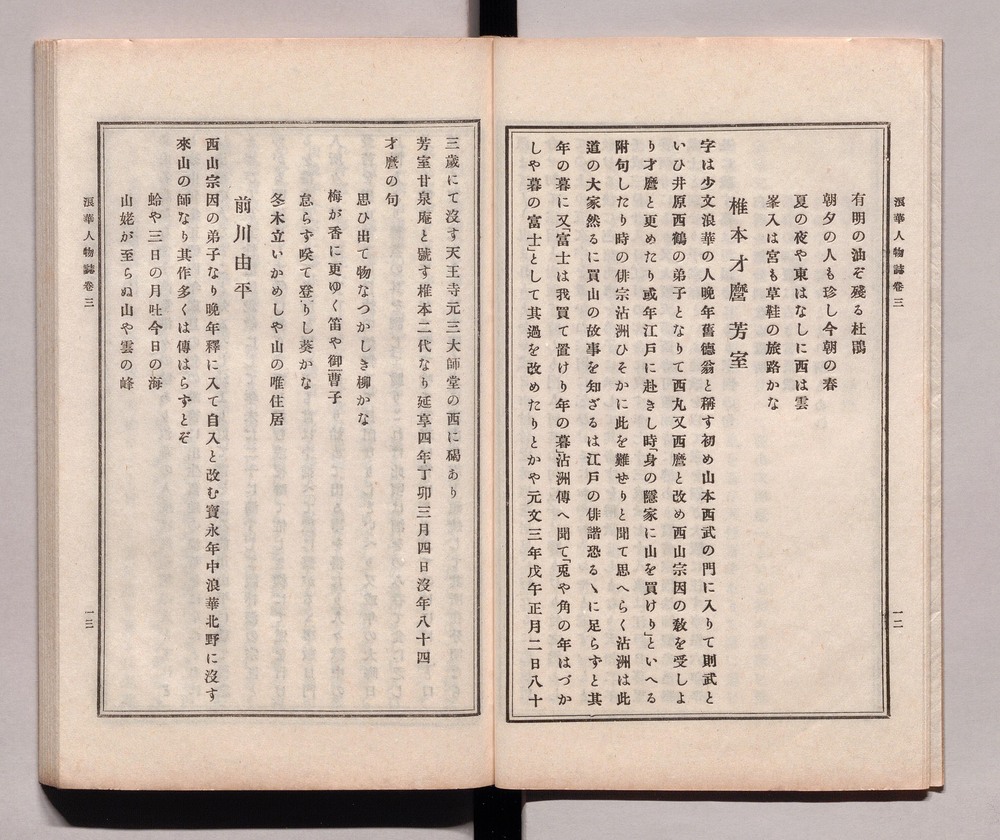 浪華人物誌卷三
一二
有明の油ぞ殘る杜鵑
朝夕の人も珍し今朝の春
夏の夜や東はなしに西は雲
峯入は宮も草鞋の旅路かな
椎本才麿 芳室
字は少文浪華の人晩年舊德翁と稱す初め山本西武の門に入りて則武と
いひ井原西鶴の弟子となりて西丸又西麿と改め西山宗因の敎を受しよ
り才麿と更めたり或年江戸に赴きし時「身の隱家に山を買けり」といへる
附句したり時の俳宗沾洲ひそかに此を難せりと聞て思へらく沾洲は此
道の大家然るに買山の故事を知ざるは江戸の俳諧恐るゝに足らずと其
年の暮に又「富士は我買て置けり年の暮」沾洲傳へ聞て「兎や角の年はづか
しや暮の富士」として其過を改めたりとかや元文三年戊午正月二日八十
三歲にて沒す天王寺元三大師堂の西に碣あり
芳室甘泉庵と號す椎本二代なり延享四年丁卯三月四日沒年八十四
才麿の句
思ひ出て物なつかしき柳かな
梅が香に更ゆく笛や御曹子
怠らず咲て登りし葵かな
冬木立いかめしや山の唯住居
前川由平
西山宗因の弟子なり晩年釋に入て自入と改む寶永年中浪華北野に沒す
來山の師なり其作多くは傳はらずとぞ
蛤や三日の月吐今日の海
山姥が至らぬ山や雲の峰
浪華人物誌卷三
一三